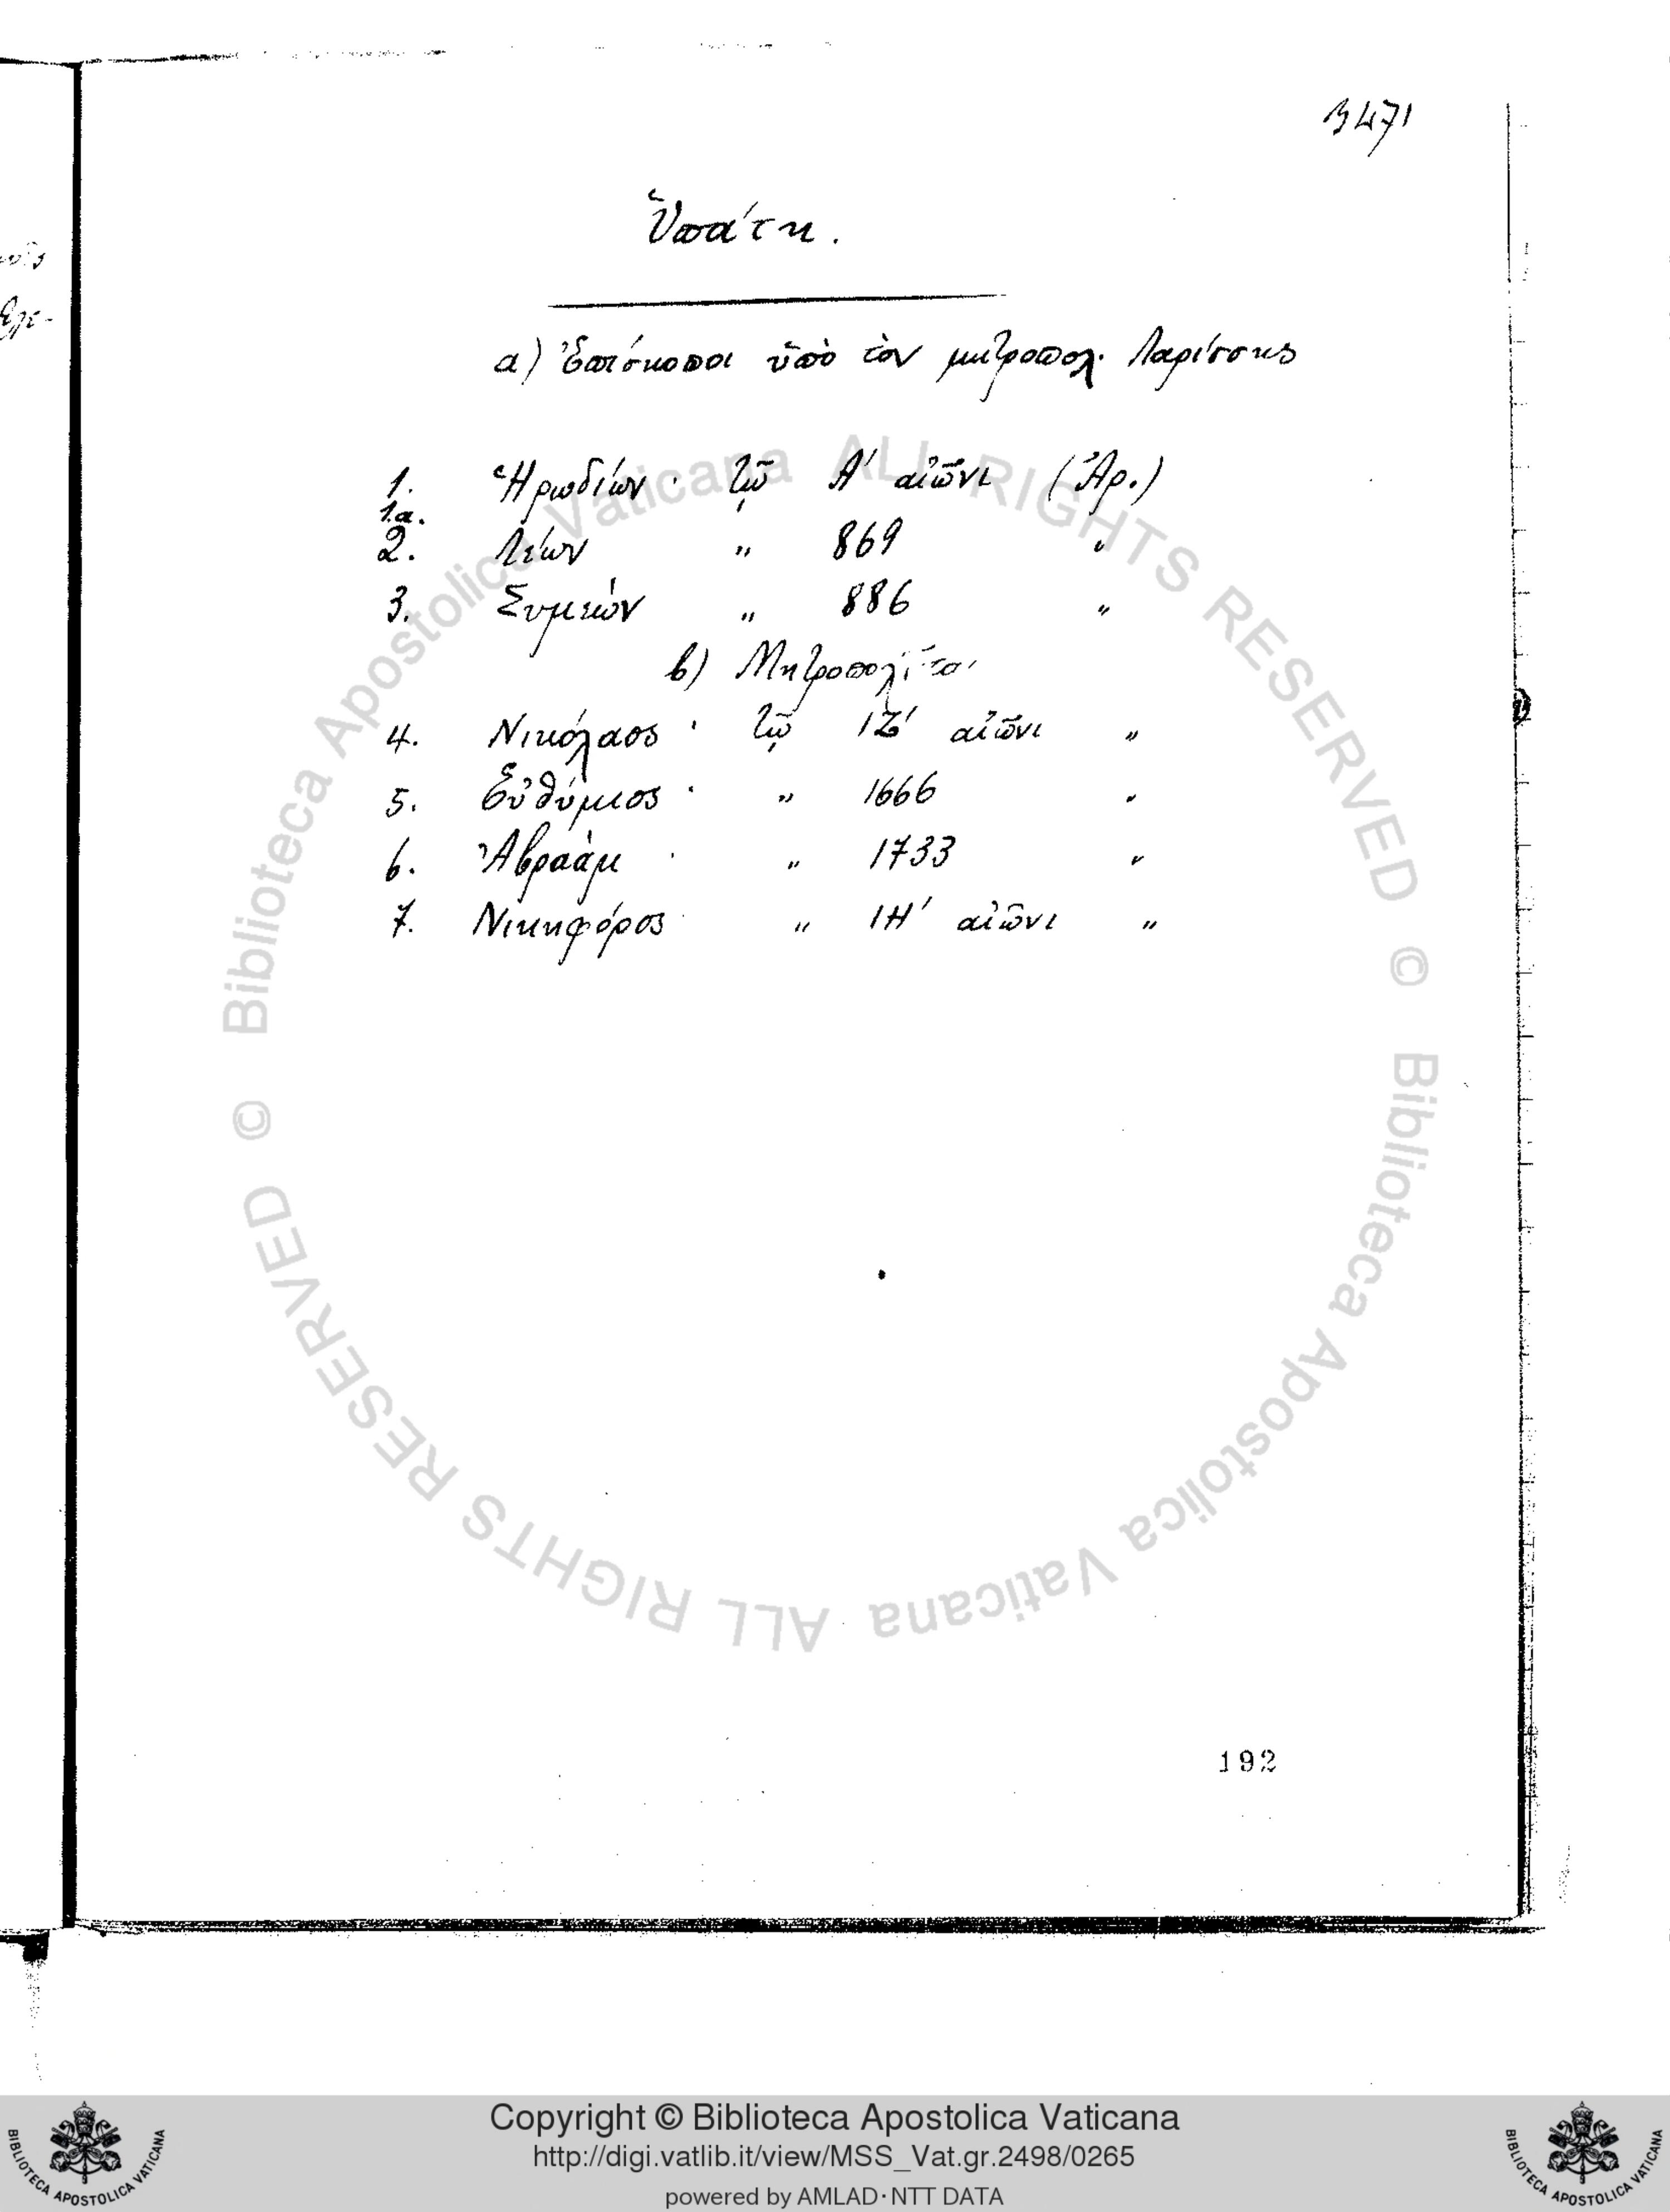 3471
Ὑπάτη.
α) Ἐπίσκοποι ὑπὸ τὸν μητροπολ. Λαρίσσης
1. Ἡρωδίων · τῷ Α΄ αἰῶνι (Ἀρ.)
1α.
2. Λέων " 869 "
3. Συμεών " 886 "
β) Μητροπολῖται
4. Νικόλαος · τῷ ΙΖ΄ αἰῶνι "
5. Εὐθύμιος · " 1666 "
6. Ἀβραάμ · " 1733 "
7. Νικηφόρος · " ΙΗ΄ αἰῶνι "
192
© Biblioteca Apostolica Vaticana ALL RIGHTS RESERVED
© Biblioteca Apostolica Vaticana ALL RIGHTS RESERVED
Copyright © Biblioteca Apostolica Vaticana
http://digi.vatlib.it/view/MSS_Vat.gr.2498/0265
powered by AMLAD·NTT DATA
BIBLIOTECA APOSTOLICA VATICANA
BIBLIOTECA APOSTOLICA VATICANA